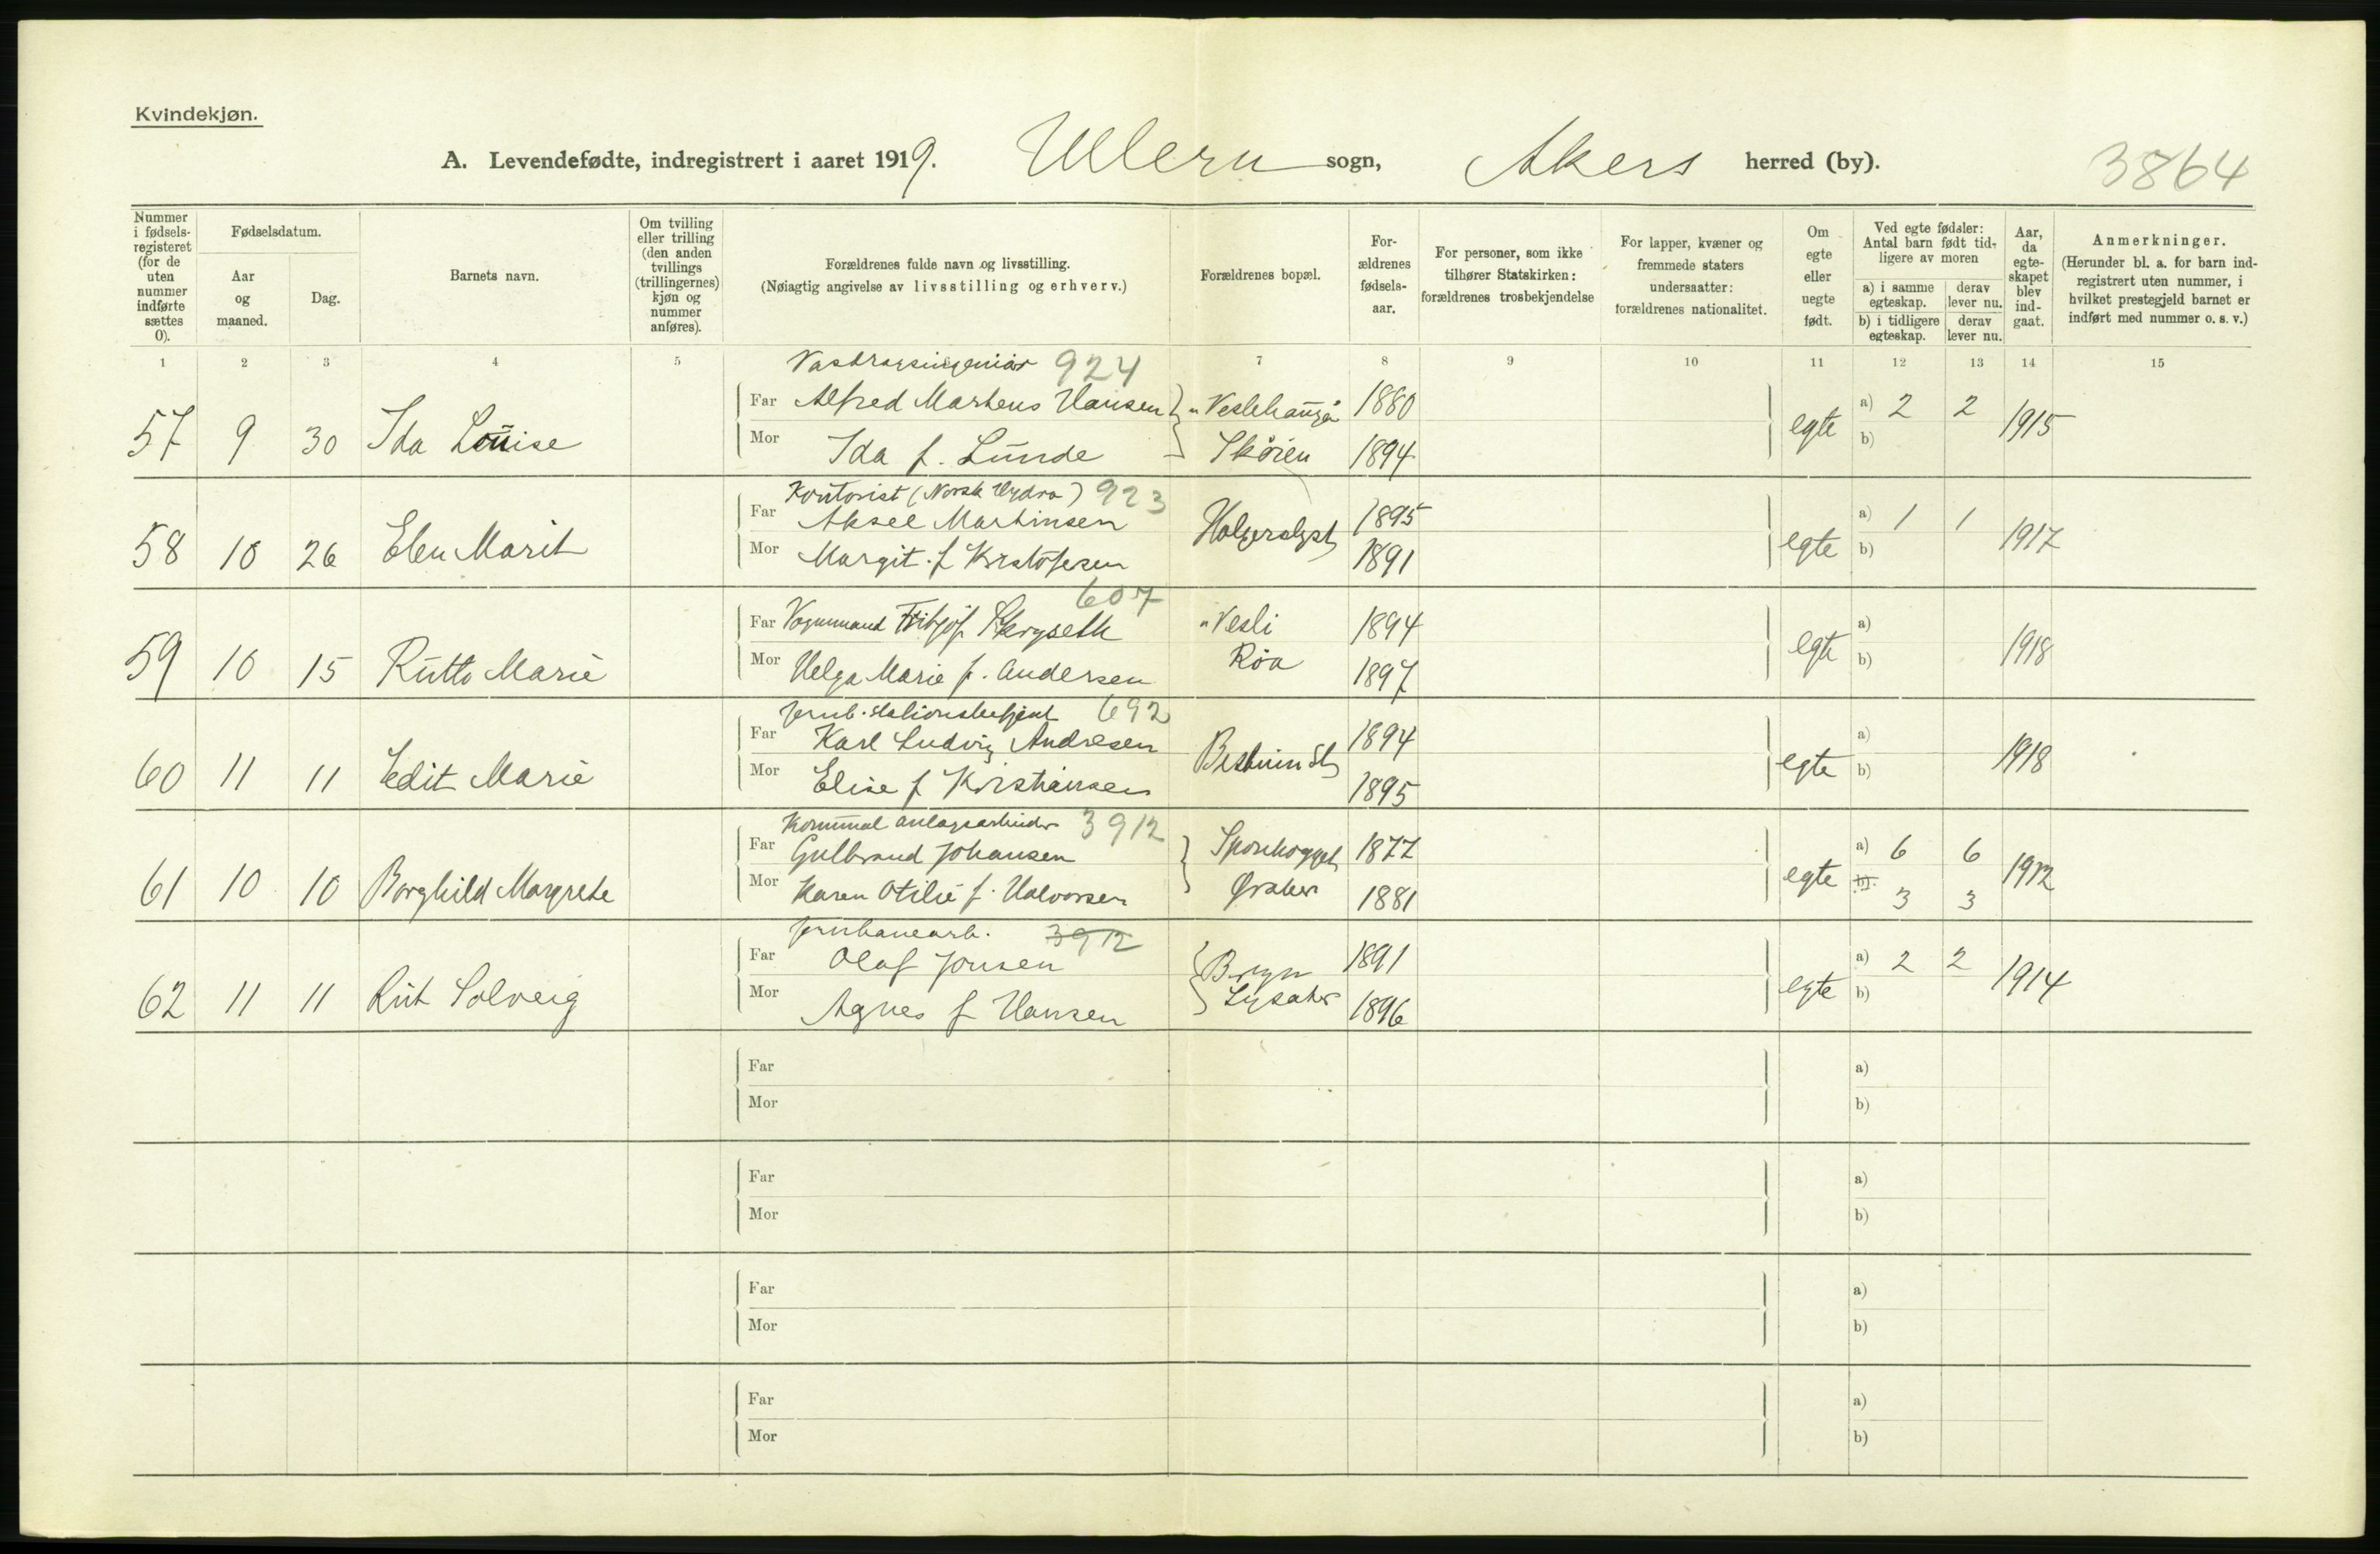 Kvindekjøn.
A. Levendefødte, indregistrert i aaret 1919. Ullern sogn, Akers herred (by). 3864
Nummer i fødsels-registeret (for de uten nummer indførte sættes 0).
Fødselsdatum.
Aar og maaned.
Dag.
Barnets navn.
Om tvilling eller trilling (den anden tvillings (trillingernes) kjøn og nummer anføres).
Forældrenes fulde navn og livsstilling.
(Nøiagtig angivelse av livsstilling og erhverv.)
Forældrenes bopæl.
For-ældrenes fødsels-aar.
For personer, som ikke tilhører Statskirken: forældrenes trosbekjendelse
For lapper, kvæner og fremmede staters undersaatter: forældrenes nationalitet.
Om egte eller uegte født.
Ved egte fødsler: Antal barn født tid-ligere av moren
a) i samme egteskap. derav lever nu.
b) i tidligere egteskap. derav lever nu.
Aar, da egte-skapet blev ind-gaat.
Anmerkninger.
(Herunder bl. a. for barn ind-registrert uten nummer, i hvilket prestegjeld barnet er indført med nummer o. s. v.)
1 2 3 4 5 7 8 9 10 11 12 13 14 15
924
57 9 30 Ida Louise Far Alfred Martens Hansen 1880 egte a) 2 2 1915
Mor Ida f. Lunde Skøien 1894 b)
Kontorist (Norsk Hydro) 923
58 10 26 Elen Marit Far Aksel Martinsen 1895 egte a) 1 1 1917
Mor Margit f Kristofersen 1891 b)
607
59 10 15 Ruth Marie Far Vognmand Fritjof Skryseth Vesli 1894 egte a) 1918
Mor Helga Marie f. Andersen Røa 1897 b)
Jernb. stationsbetjent 692
60 11 11 Edit Marie Far Karl Ludvig Andresen Bestum St 1894 egte a) 1918
Mor Elise f Kristiansen 1895 b)
Kommunal anlægsarbeider 3912
61 10 10 Borghild Margrete Far Gulbrand Johansen Sponhogget 1877 egte a) 6 6 1912
Mor Karen Otilie f. Halvorsen Øraker 1881 b) 3 3
Jernbanearb. 3912
62 11 11 Rut Solveig Far Olaf Jonsen Bryn 1891 egte a) 2 2 1914
Mor Agnes f Hansen Lysaker 1896 b)
Far a)
Mor b)
Far a)
Mor b)
Far a)
Mor b)
Far a)
Mor b)